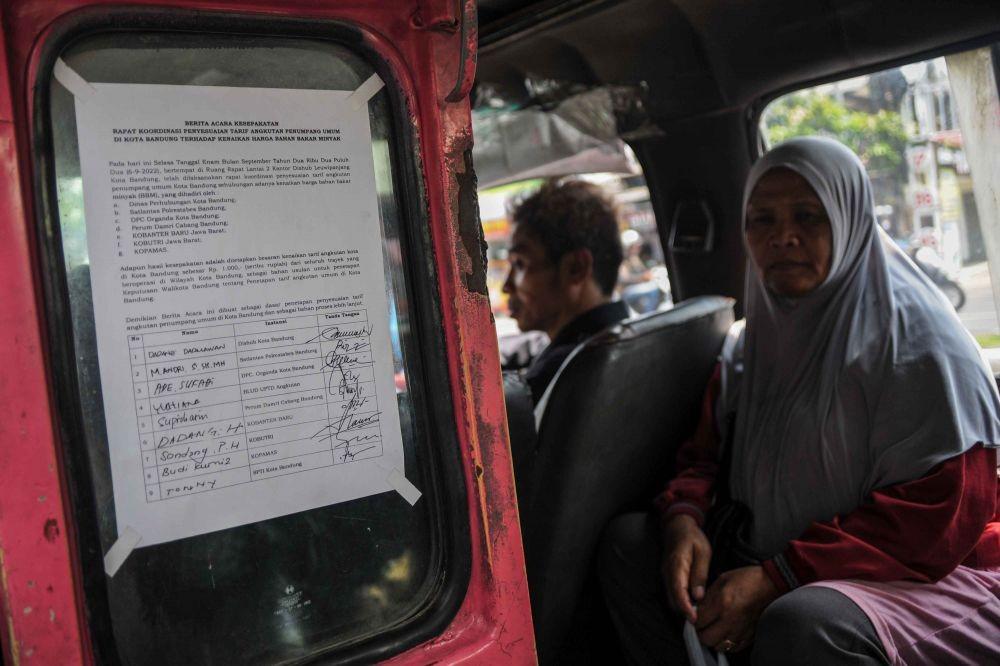 BERITA ACARA KESEPAKATAN
RAPAT KOORDINASI PENYESUAIAN TARIF ANGKUTAN PENUMPANG UMUM
DI KOTA BANDUNG TERHADAP KENAIKAN HARGA BAHAN BAKAR MINYAK
Pada hari ini Selasa Tanggal Enam Bulan September Tahun Dua Ribu Dua Puluh
Dua (6-9-2022), bertempat di Ruang Rapat Lantai 2 Kantor Dishub Leuwipanjang
Kota Bandung, telah dilaksanakan rapat koordinasi penyesuaian tarif angkutan
penumpang umum Kota Bandung sehubungan adanya kenaikan harga bahan bakar
minyak (BBM), yang dihadiri oleh :
a. Dinas Perhubungan Kota Bandung;
b. Satlantas Polrestabes Bandung;
c. DPC Organda Kota Bandung;
d. Perum Damri Cabang Bandung;
e. KOBANTER BARU Jawa Barat;
f. KOBUTRI Jawa Barat;
g. KOPAMAS.
Adapun hasil kesepakatan adalah ditetapkan besaran kenaikan tarif angkutan kota
di Kota Bandung sebesar Rp. 1.000,- (seribu rupiah) dari seluruh trayek yang
beroperasi di Wilayah Kota Bandung, sebagai bahan usulan untuk penetapan
Keputusan Walikota Bandung tentang Penetapan tarif angkutan umum di Kota
Bandung.
Demikian Berita Acara ini dibuat sebagai dasar penetapan penyesuaian tarif
angkutan penumpang umum di Kota Bandung dan sebagai bahan proses lebih lanjut.
No Nama Instansi Tanda Tangan
1 DADANG DARMAWAN Dishub Kota Bandung
2 M. ANDRI, S. SH. MH Satlantas Polrestabes Bandung
3 ADE. SUFADI DPC. Organda Kota Bandung
4 BLUD UPTD Angkutan
5 Perum Damri Cabang Bandung
6 DADANG. H KOBANTER BARU
7 Sondang. P. H KOBUTRI
8 Budi KOPAMAS
9 TONNY BPTI Kota Bandung